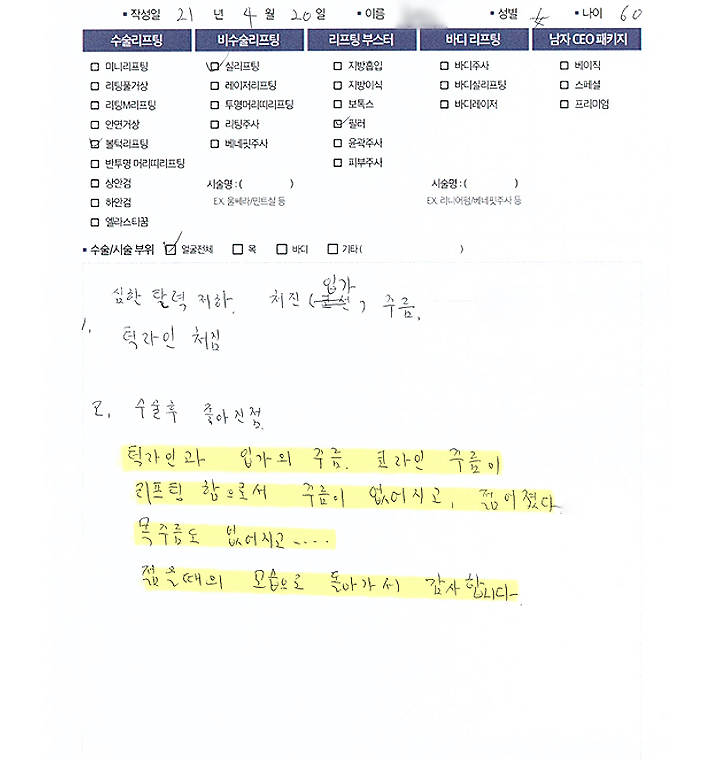 작성일 21 년 4 월 20 일 이름 성별 나이 60
수술리프팅 비수술리프팅 리프팅 부스터 바디 리프팅 남자 CEO 패키지
미니리프팅 실리프팅 지방흡입 바디주사 베이직
리팅풀거상 레이저리프팅 지방이식 바디실리프팅 스페셜
리팅M리프팅 투명머리띠리프팅 보톡스 바디레이저 프리미엄
안면거상 리팅주사 필러
볼턱리프팅 베네핏주사 윤곽주사
반투명 머리띠리프팅 피부주사
상안검 시술명 : ( ) 시술명 : ( )
하안검 EX. 울쎄라/민트실 등 EX. 리니어펌/베네핏주사 등
엘라스티꿈
수술/시술 부위 얼굴전체 목 바디 기타 ( )
입가
심한 탈력 저하. 처진 ( , 주름.
1.
턱라인 처짐
2. 수술후 좋아진점
턱라인과 입가의 주름. 코라인 주름이
리프팅 함으로서 주름이 없어지고, 젊어졌다.
목주름도 없어지고.....
젊을때의 모습으로 돌아가서 감사합니다~